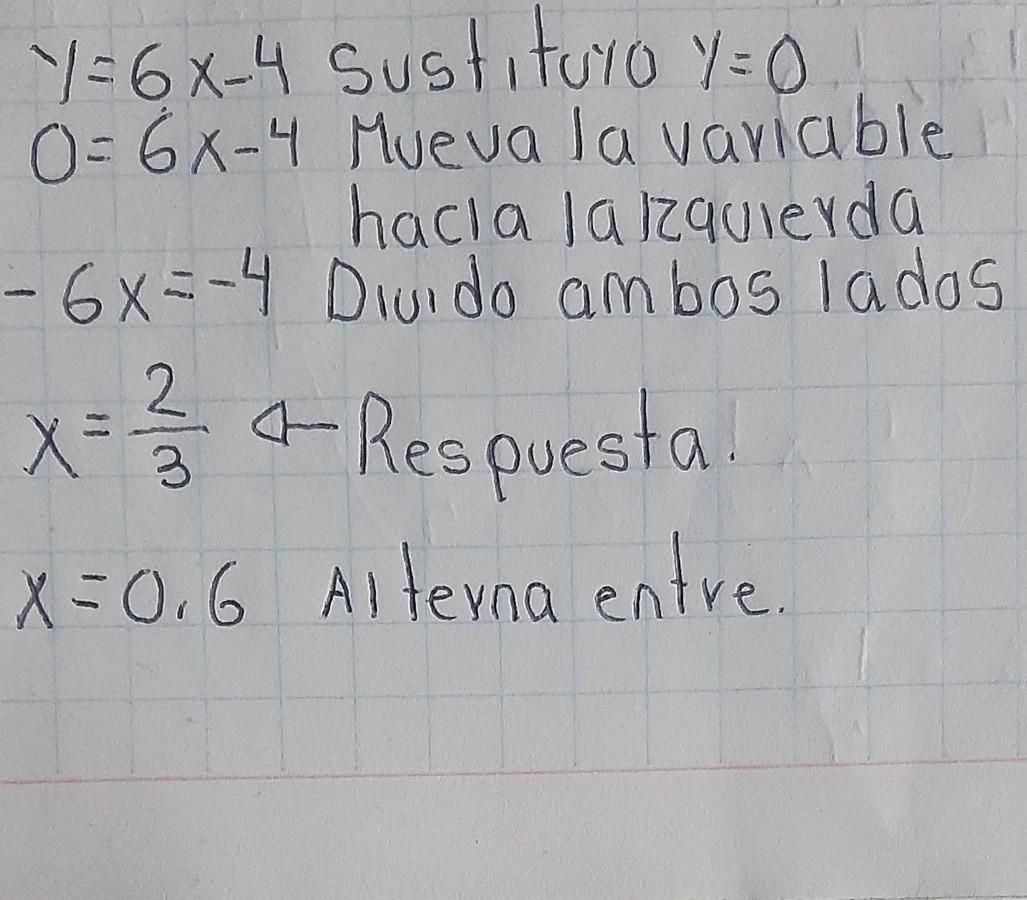 y=6x-4 Sustituyo y=0
0=6x-4 Mueva la variable
hacia la izquierda
-6x=-4 Divido ambos lados
x=2/3 ← Respuesta.
x=0.6 Alterna entre.